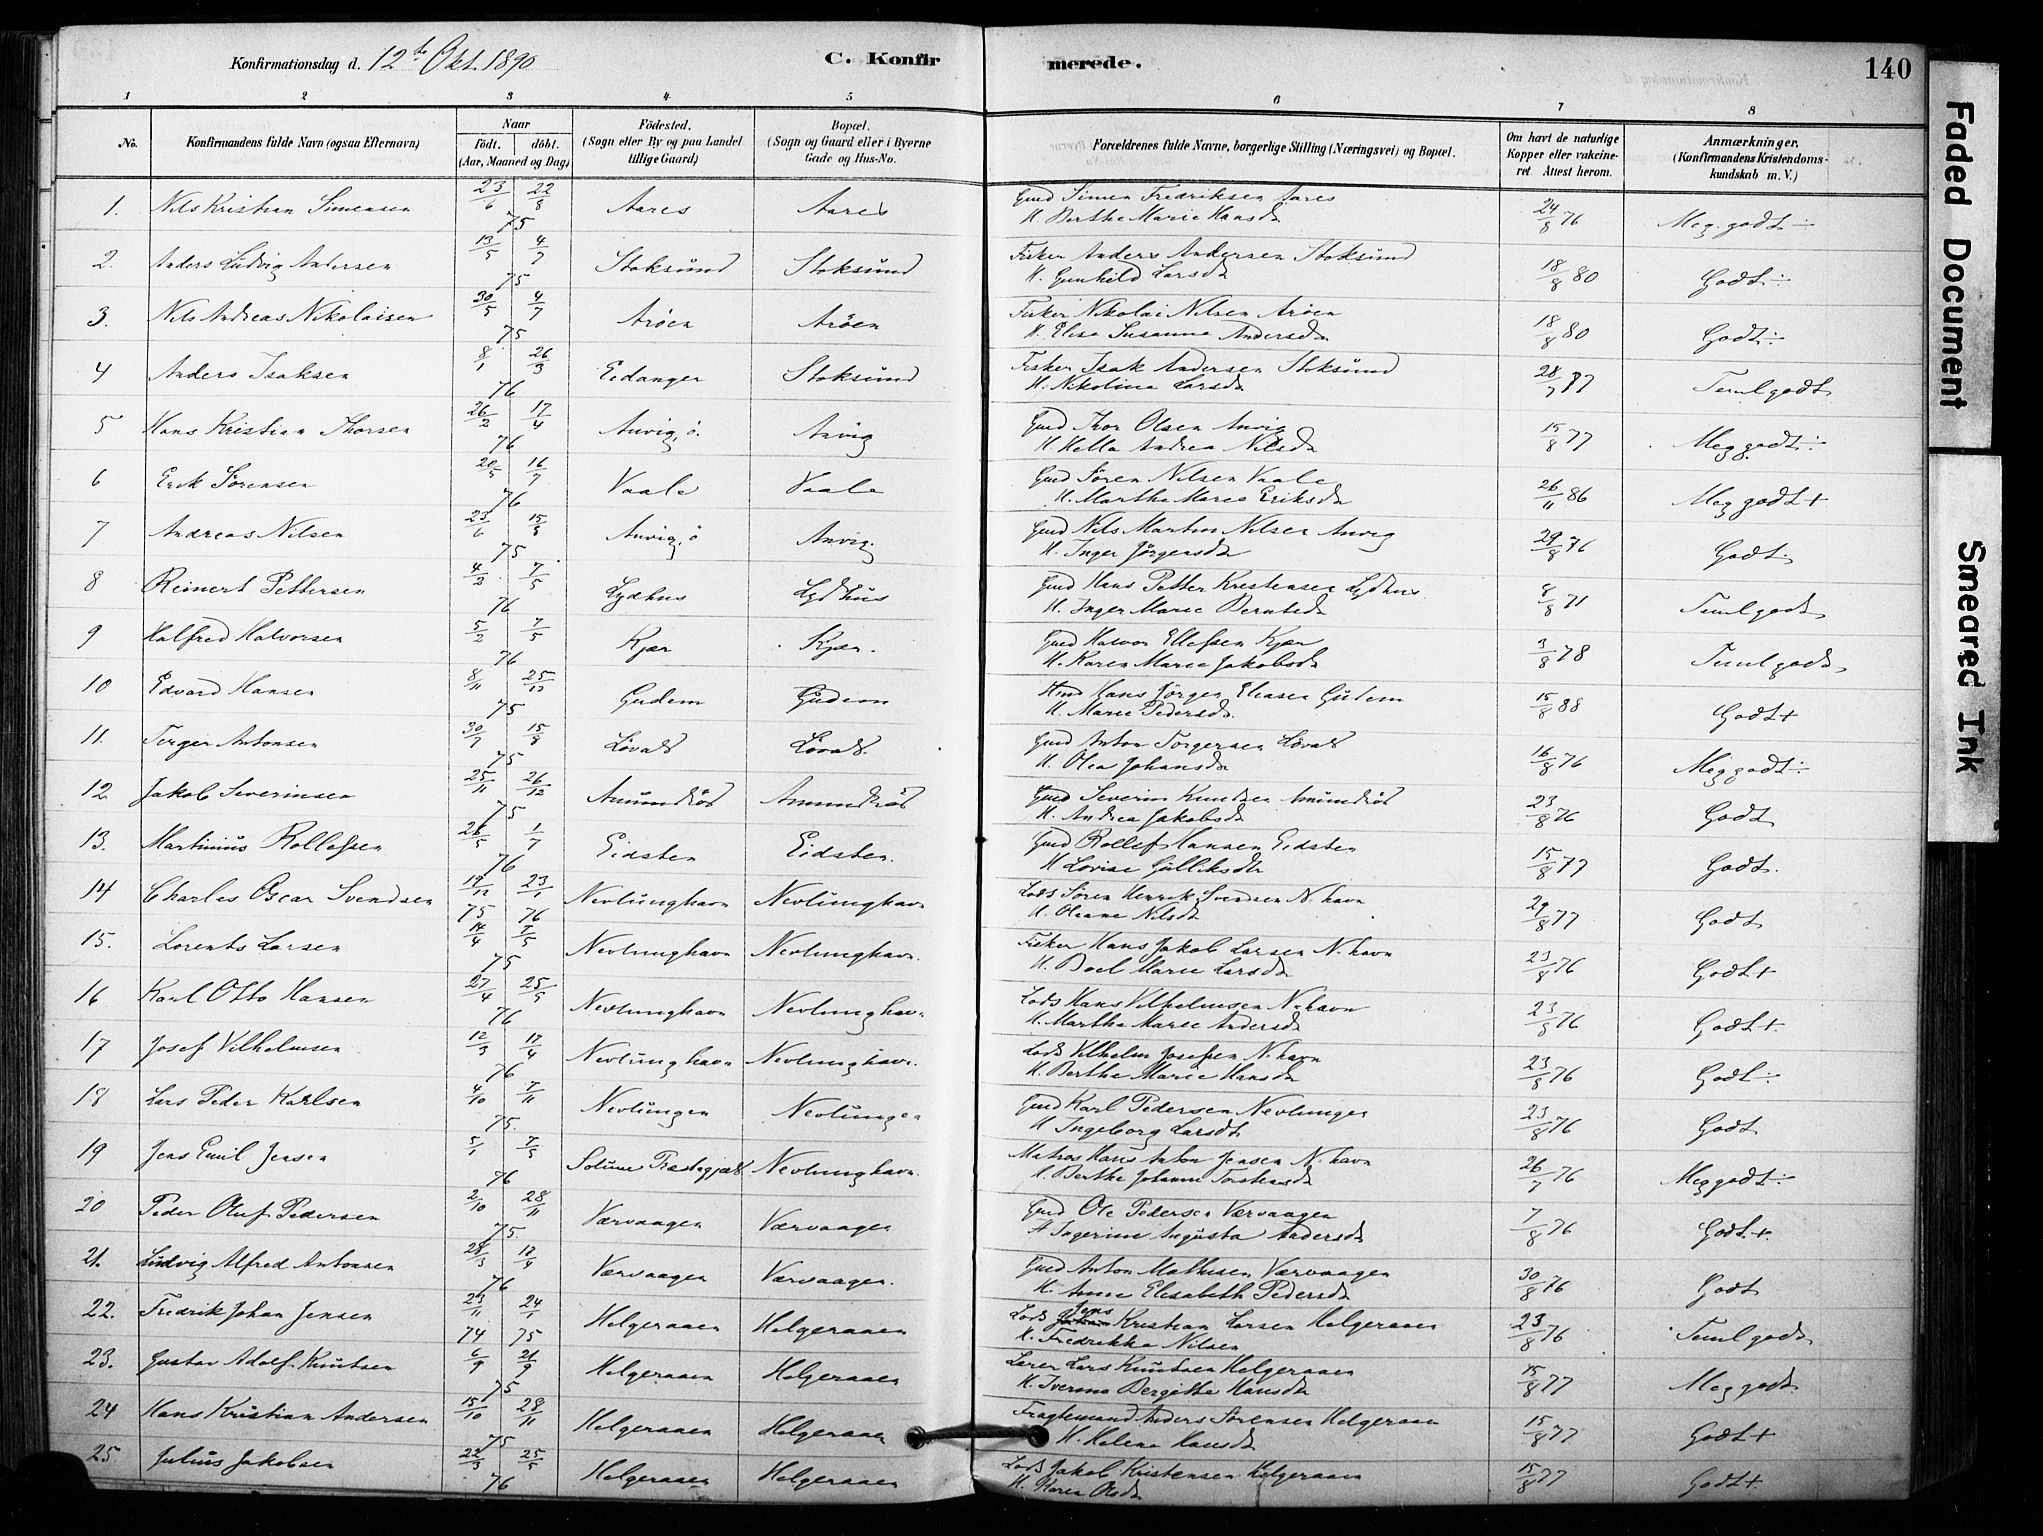 Konfirmationsdag d. 12te Okt. 1890 C. Konfirmerede. 140
1 2 3 4 5 6 7 8
No. Konfirmandens fulde Navn (ogsaa Efternavn) Naar Födt. döbt. (Aar, Maaned og Dag) Födested. (Sogn eller By og paa Landet tillige Gaard) Bopæl. (Sogn og Gaard eller i Byerne Gade og Hus-No. Forældrenes fulde Navne, borgerlige Stilling (Næringsvei) og Bopæl. Om havt de naturlige Kopper eller vakcineret Attest herom. Anmærkninger. (Konfirmandens Kristendomskundskab m. V.)
1. Nils Kristian Simensen 23/6 22/8 75 Aares Aares Gmd Simen Fredriksen Aares
H. Berthe Marie Hansd 24/8 76 Meg. godt ÷
2. Anders Ludvig Andersen 13/5 4/7 75 Stoksund Stoksund Fisker Anders Andersen Stoksund
H. Gunhild Larsd 18/8 80 Godt ÷
3. Nils Andreas Nikolaisen 30/5 4/7 75 Aröen Aröen Fisker Nikolai Nilsen Aröen
H. Elise Susanne Andersd 18/8 80 Godt ÷
4 Anders Isaksen 8/1 26/3 76 Eidanger Stoksund Fisker Isak Andersen Stoksund
H. Nikoline Larsd 28/7 77 Teml godt
5 Hans Kristian Thorsen 26/2 17/4 76 Anvig, ö. Anvig Gmd Thor Olsen Anvig
H. Helle Andrea Nilsd 15/8 77 Meg godt ÷
6 Erik Sörensen 20/5 16/7 76 Vaale Vaale Gmd Sören Nilsen Vaale
H. Marthe Marie Eriksd 26/11 86 Meg godt +
7 Andreas Nilsen 23/6 15/8 75 Anvig, ö Anvig. Gmd Nils Martin Nilsen Anvig
H. Inger Jörgensd 29/8 76 Godt
8 Reinert Pettersen 4/2 7/5 76 Lydhus Lydhus Gmd Hans Petter Kristensen Lydhus
H. Inger Marie Berntsd 8/8 71 Teml godt
9 Halfred Halvorsen 5/2 7/5 76 Kjær Kjær. Gmd Halvor Ellefsen Kjær
H. Karen Marie Jakobsd 3/8 78 Teml godt
10 Edvard Hansen 8/11 25/12 75 Gudem Gudem Hmd Hans Jörgen Eliasen Gudem
H. Marie Pedersd 15/8 88 Godt +
11. Terger Antonsen 30/7 15/8 75 Lövald Lövald. Gmd Anton Torgersen Lövald
H. Olea Johansd 16/8 76 Meg godt ÷
12 Jakob Severinsen 25/11 26/12 75 Amundröd Amundröd Gmd Severin Knudsen Amundröd
H. Andrea Jakobsd 23/8 76 Godt
13. Martinius Rollefsen 26/5 1/7 76 Eidsten Eidsten. Gmd Rollef Hansen Eidsten
H Lovise Gulliksdtr 15/8 77 Godt.
14 Charles Oscar Svendsen 19/12 75 23/1 76 Nevlunghavn Nevlunghavn Lods Sören Henrik Svendsen N. havn
H. Oleane Nilsdt 29/8 77 Godt
15. Lorents Larsen 14/4 7/5 75 Nevlunghavn Nevlunghavn. Fisker Hans Jakob Larsen N. havn
H. Boel Marie Larsd 23/8 76 Godt +
16 Karl Otto Hansen 27/4 25/5 76 Nevlunghavn Nevlunghavn Lods Hans Vilhelmsen N. havn
H. Marthe Marie Andersd 23/8 76 Godt +
17 Josef Vilhelmsen 12/3 17/4 76 Nevlunghavn Nevlunghavn. Lods Vilhelm Josefsen N. havn
H. Berthe Marie Hansd 23/8 76 Godt ÷
18 Lars Peder Karlsen 4/10 7/11 75. Nevlungen Nevlungen Gmd Karl Pedersen Nevlungen
H Ingeborg Larsdt 23/8 76 Godt
19 Jens Emil Jensen 5/1 7/5 76 Solum Nevlunghavn. Matros Hans Anton Jensen N. havn
H. Berthe Johanne 26/7 76 Meg godt ÷
20 Peder Oluf Pedersen 2/10 28/11 75. Værvaagen Værvaagen Gmd Ole Pedersen Værvaagen
H Ingerine Augusta Andersd 7/8 76 Godt +.
21. Ludvig Alfred Antonsen 28/3 17/4 76 Værvaagen Værvaagen. Gmd Anton Mathisen Værvaagen
H. Anne Elisabeth Pedersd 30/8 76 Godt
22. Fredrik Johan Jensen 23/11 74 24/1 75 Helgeraaen Helgeraaen Lods Jens Kristian Larsen Helgeraaen
H. Fredrikke Nilsen 23/8 76 Teml godt
23. Gustav Adolf Knutsen 6/9 21/9 75 Helgeraaen Helgeraaen Lærer Lars Knutsen Helgeraaen
H. Iverine Bergitte Hansd 15/8 77 Meg godt
24 Hans Kristian Andersen 15/10 28/11 75 Helgeraaen Helgeraaen Fragtemand Anders Sörensen Helgeraaen
H. Helene Hansd 15/8 77 Godt +
25. Julius Jakobsen 22/3 25/5 76 Helgeraaen Helgeraaen Lods Jakob Kristensen Helgeraaen
H. Karen Olsd 15/8 77 Godt +.
Faded Document
Smeared Ink